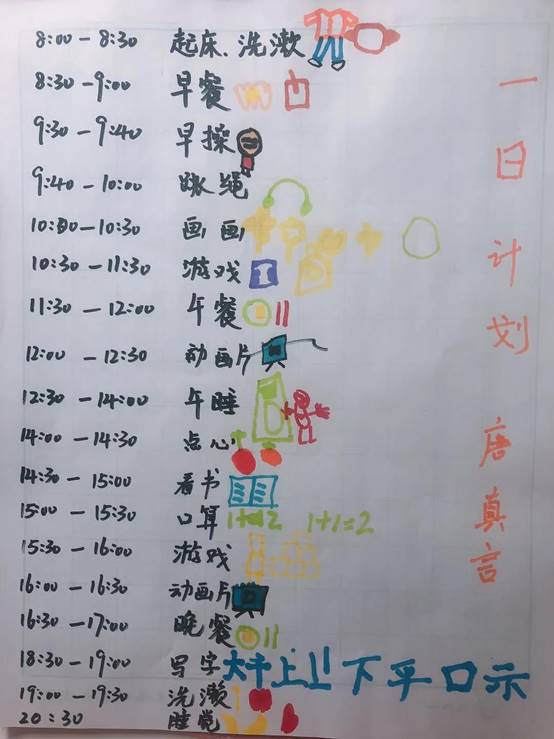 8:00 - 8:30 起床、洗漱
8:30 - 9:00 早餐
9:30 - 9:40 早操
9:40 - 10:00 跳绳
10:00 - 10:30 画画
10:30 - 11:30 游戏
11:30 - 12:00 午餐
12:00 - 12:30 动画片
12:30 - 14:00 午睡
14:00 - 14:30 点心
14:30 - 15:00 看书
15:00 - 15:30 口算 1+1=2 1+1=2
15:30 - 16:00 游戏
16:00 - 16:30 动画片
16:30 - 17:00 晚餐
18:30 - 19:00 写字 大千上 下平口示
19:00 - 19:30 洗漱
20:30 睡觉
一日计划 唐真言